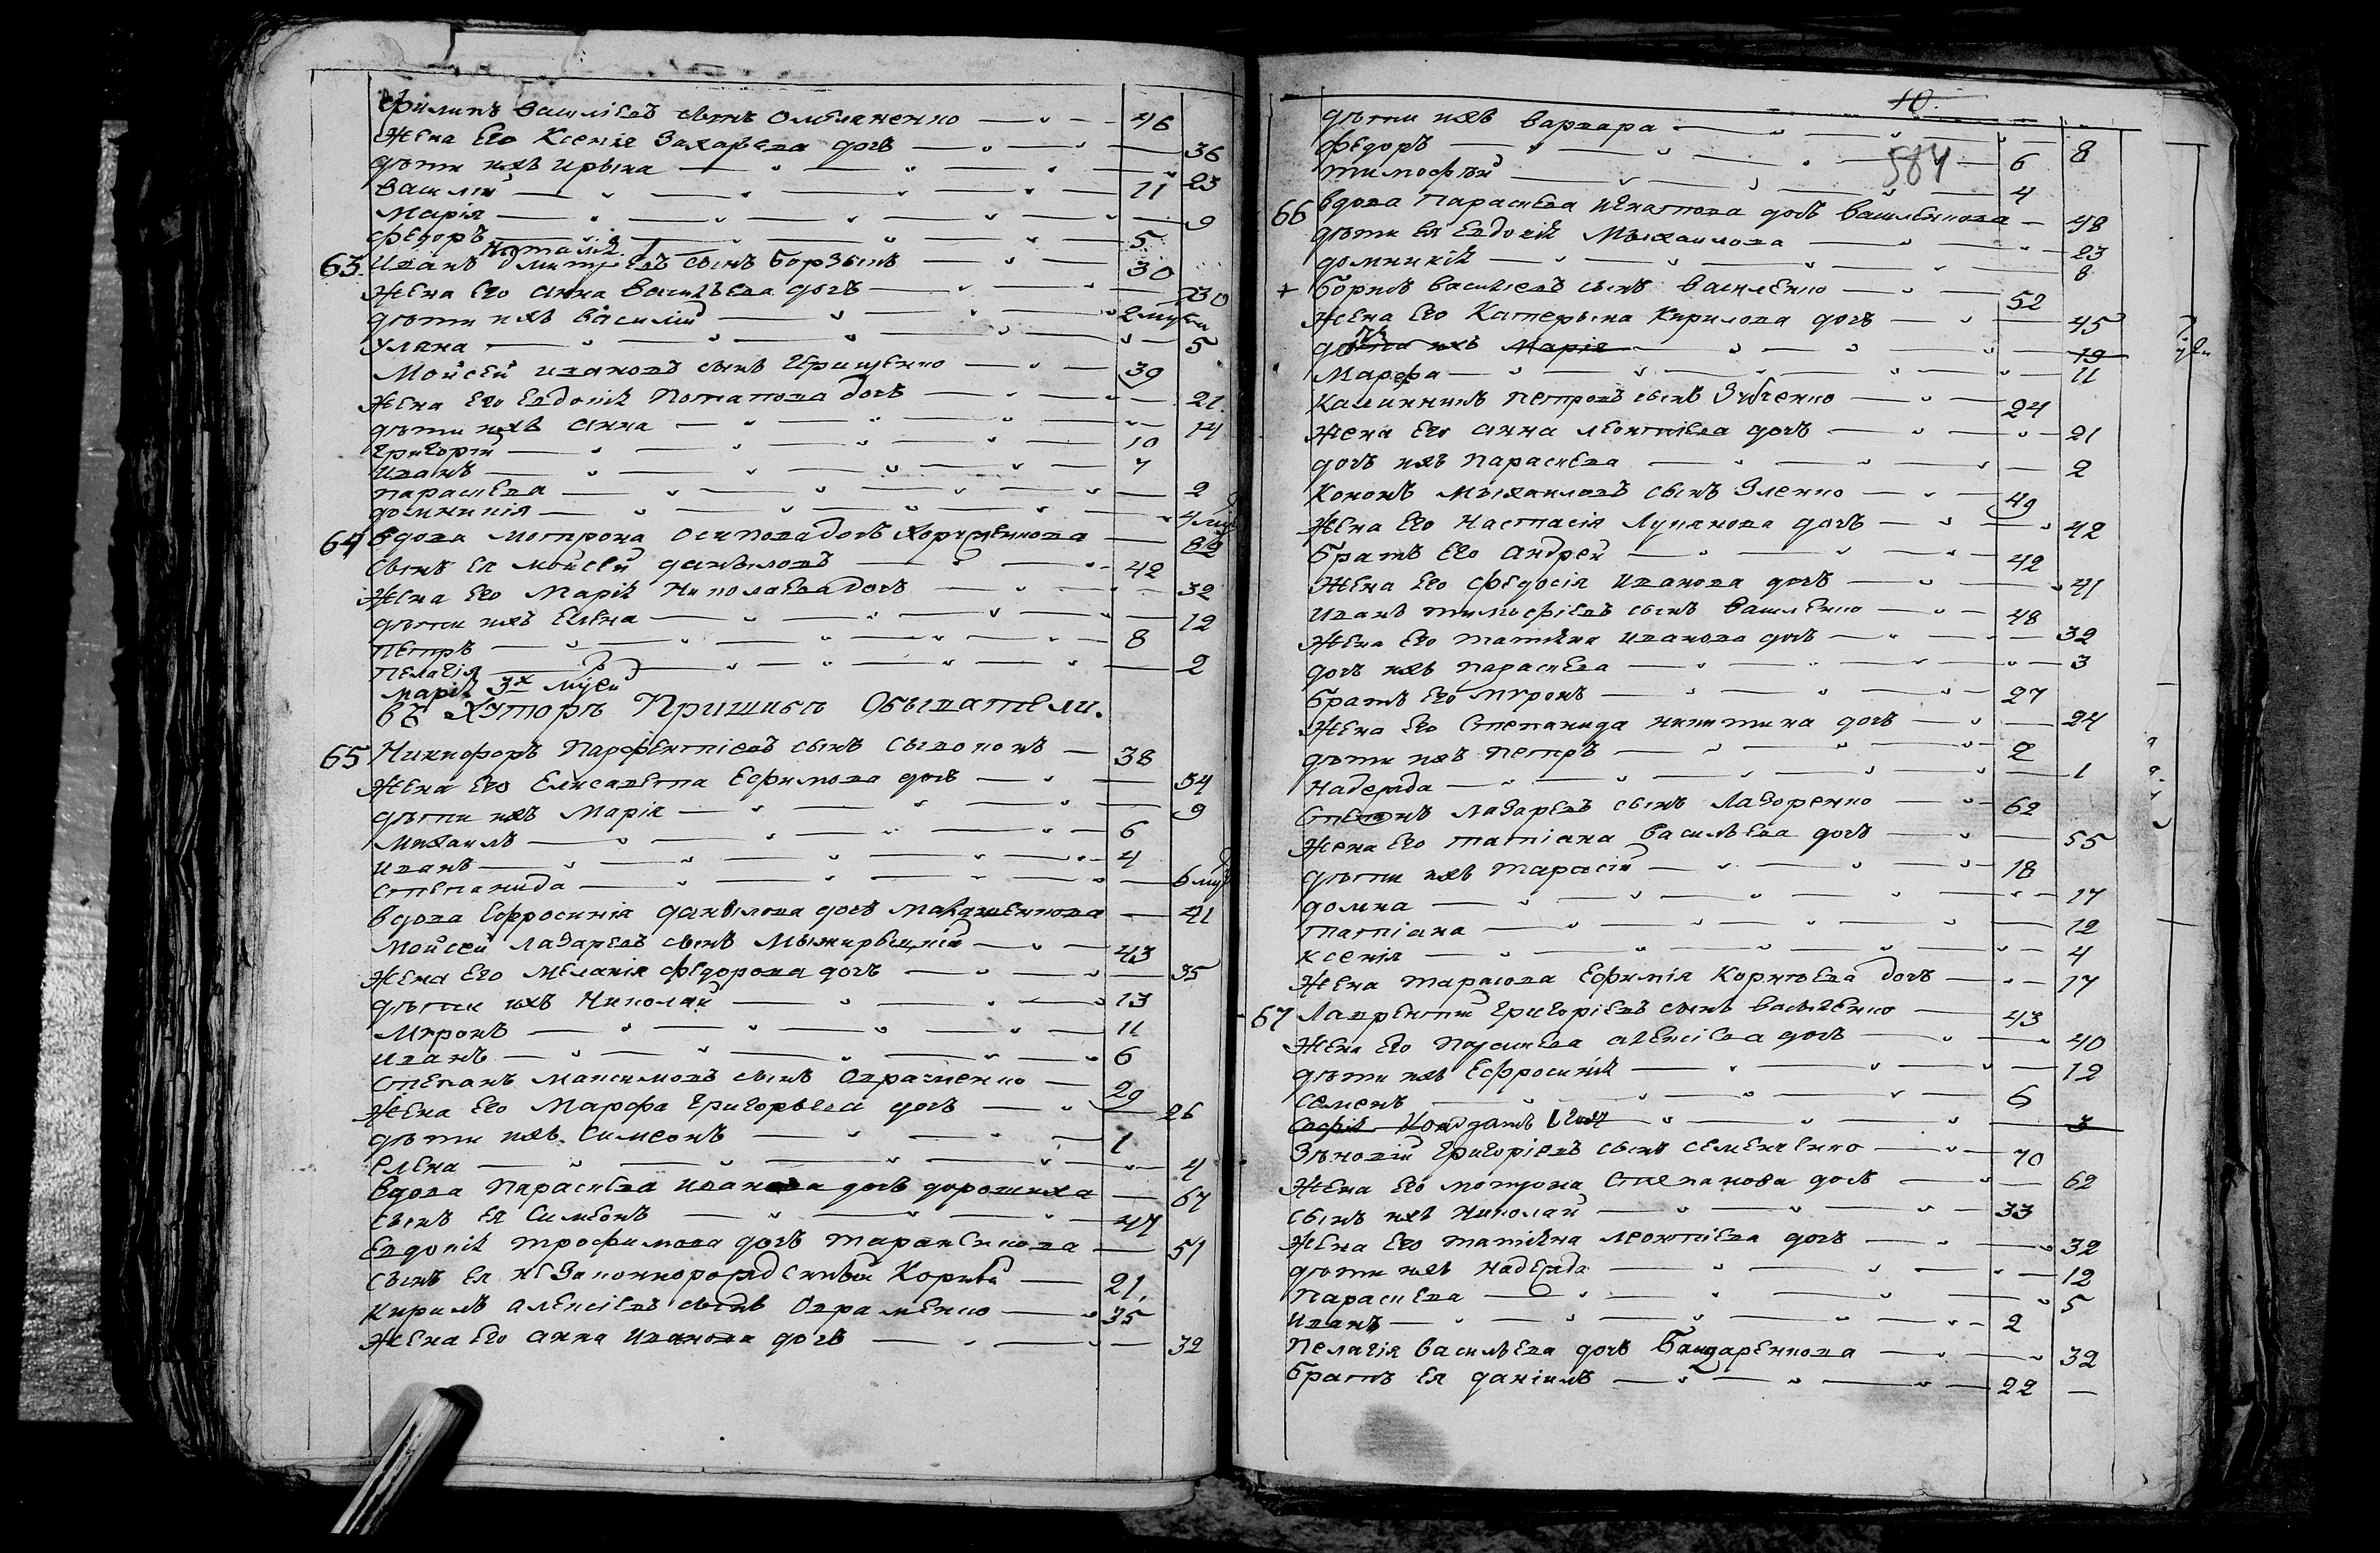 Филипъ Василіевъ сынъ Омеляненко 46
Жена Его Ксенія Захарьева дочь 36
дѣти ихъ Ирына 23
Василій 11
Марія 9
Федоръ 5
Наталія
63 Иванъ Дмитріевъ сынъ Борзыкъ 30
Жена Его Анна Васильева дочь 30
дѣти ихъ Василій 2
Уляна 5
Мойсей Ивановъ сынъ Грищенко 39
Жена Его Евдокія Потапова дочь 21
дѣти ихъ Анна 14
Григорій 10
Иванъ 7
Параскева 2
Домникія 4
64 Вдова Мотрона Осипова дочь
Сынъ Ея Мойсей Даниловъ 42
Жена Его Марія Николаева дочь 32
дѣти ихъ Елена 12
Петръ 8
Пелагія 2
Марія 3х
въ Хуторѣ Пришибѣ Обыватели.
65 Никифоръ Парфентіевъ сынъ 38
Жена Его Елисавета Ефимова дочь 34
дѣти ихъ Марія 9
Михаилъ 6
Иванъ 4
Степанида 6
Вдова Ефросинія Данилова дочь 41
Мойсей Лазаревъ сынъ 43
Жена Его Меланія Федорова дочь 35
дѣти ихъ Николай 13
Миронъ 11
Иванъ 6
Степанъ Максимовъ сынъ 29
Жена Его Марфа Григорьева дочь 26
дѣти ихъ Симеонъ 1
Елена 4
Вдова Параскева Иванова дочь Дорошиха 67
Сынъ Ея Симеонъ 47
Евдокія Трофимова дочь Тараненкова 51
Сынъ Ея незаконнорожденный Корній 21
Кирилъ Алексіевъ сынъ Овраменко 35
Жена Его Анна Иванова дочь 32
10.
584
дѣти ихъ Варвара 8
Федоръ 6
Тимофѣй 4
66 Вдова Параскева Игнатова дочь Василенкова 48
дѣти Ея Евдокія Михаилова 23
Домникія 8
+ Борисъ Василіевъ сынъ Василенко 52
Жена Его Катерына Кирилова дочь 45
дѣти ихъ Марія 19
Марфа 11
Калинникъ Петровъ сынъ Зубченко 24
Жена Его Анна Леонтіева дочь 21
дочь ихъ Параскева 2
Кононъ Михаиловъ сынъ Зленко 49
Жена Его Настасія Лукянова дочь 42
Братъ Его Андрей 42
Жена Его Федосія Иванова дочь 41
Иванъ Тимофіевъ сынъ Василенко 48
Жена Его Татіяна Иванова дочь 32
дочь ихъ Параскева 3
Братъ Его Миронъ 27
Жена Его Степанида Никитина дочь 24
дѣти ихъ Петръ 2
Надежда 1
Степанъ Лазаревъ сынъ Лазоренко 62
Жена Его Татіана Васильева дочь 55
дѣти ихъ Тарасій 18
Домна 17
Татіана 12
Ксенія 4
Жена Тарасова Ефимія Корнѣева дочь 17
67 Лаврентій Григоріевъ сынъ 43
Жена Его Параскева Алексіева дочь 40
дѣти ихъ Ефросинія 12
Семенъ 6
Софія 3
Зѣновій Григоріевъ сынъ Семенченко 70
Жена Его Мотрона Степанова дочь 62
Сынъ ихъ Николай 33
Жена Его Татіяна Леонтіева дочь 32
дѣти ихъ Надежда 12
Параскева 5
Иванъ 2
Пелагія Васильева дочь Бандаренкова 32
Братъ Ея Даніилъ 22